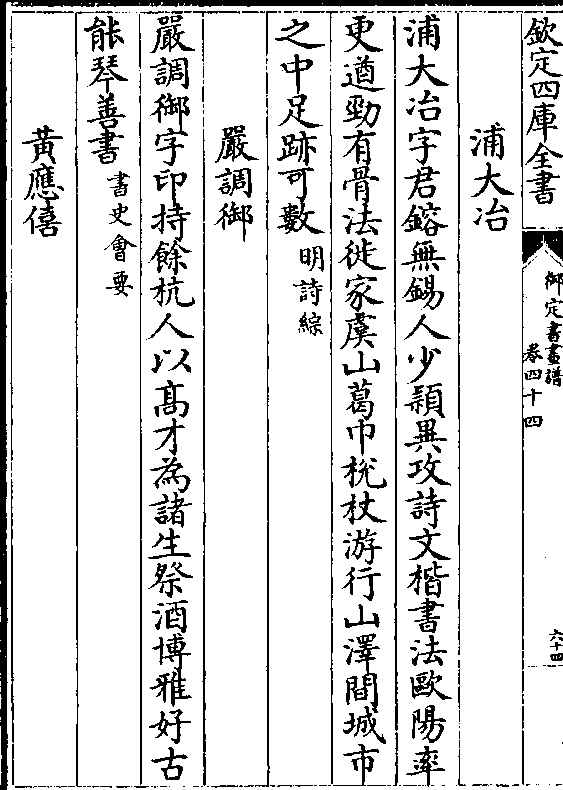 欽定四庫全書
御定書畫譜
卷四十四
六十四
浦大冶
浦大冶字君鎔無錫人少穎異攻詩文楷書法歐陽率
更遒勁有骨法徙家虞山葛巾梲杖游行山澤間城市
之中足跡可數明詩綜
嚴調御
嚴調御字印持餘杭人以髙才為諸生祭酒博雅好古
能琴善書書史會要
黃應僖